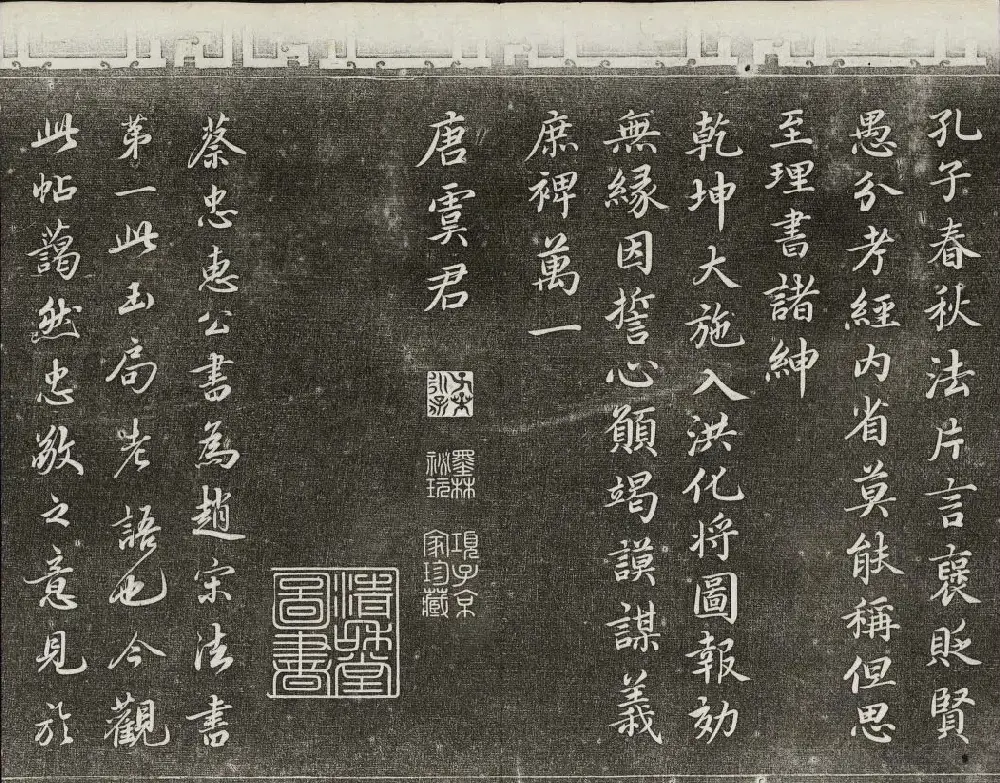 孔子春秋法片言褒貶賢
愚分考經内省莫能稱但思
至理書諸紳
乾坤大施入洪化将圖報効
無縁因誓心願竭謨謀義
庶裨萬一
唐虞君
墨林祕玩
項子京家珍藏
蔡忠惠公書為趙宋法書
第一此玉局老語也今觀
此帖藹然忠敬之意見於